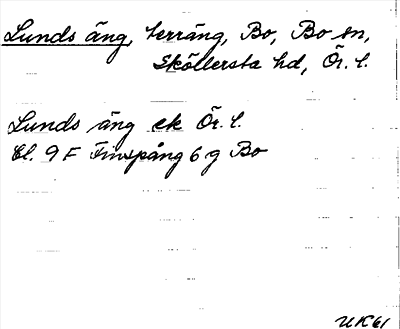 Lunds äng, terräng, Bo, Bo sn,
Sköllersta hd, Ör. l.
Lunds äng ek Ör. l.
Bl. 9 F Finspång 6 g Bo
UK61